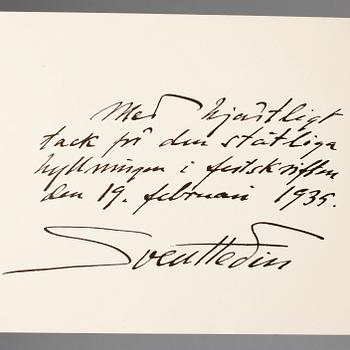 Med hjärtligt
tack för den ståtliga
hyllningen i festskriften
den 19. februari 1935.
Sven Hedin